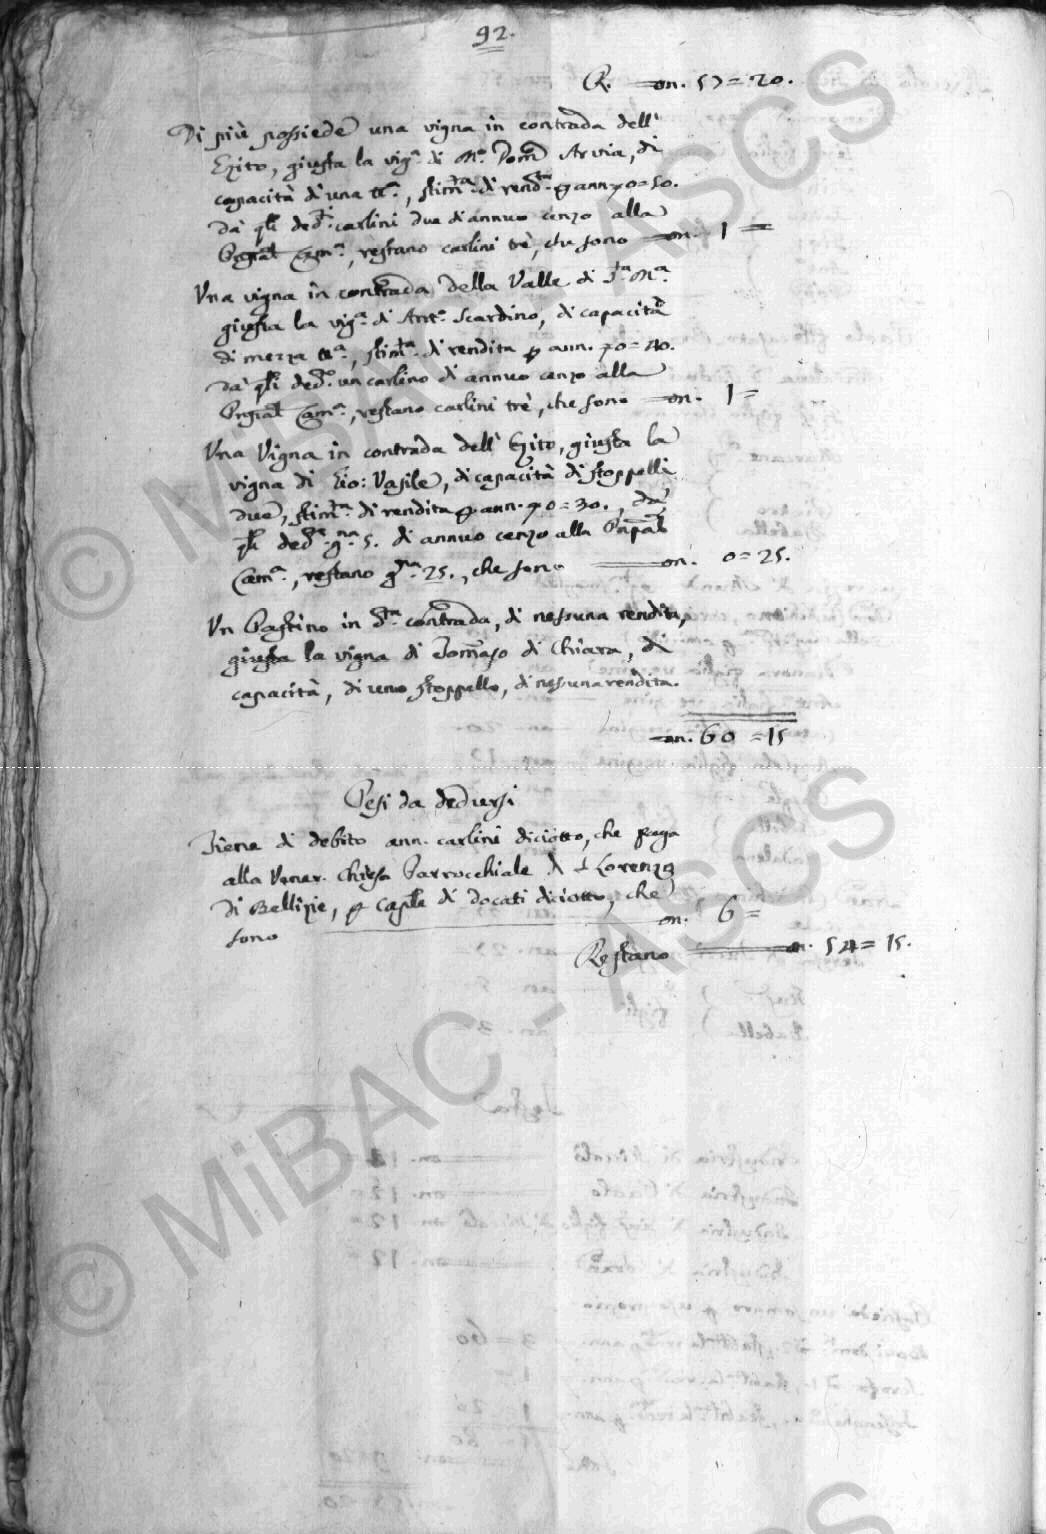 92.
R. on. 57=20.
Di più possiede una vigna in contrada dell'
Ezito, giusta la vig.a di M.o Dom.co Arvia, di
capacità di una tt.a, stim.ta di rend.ta p ann. 70=50.
Da q.li ded.ti carlini due di annuo cenzo alla
Cam.a, restano carlini trè, che sono on. 1=
Una vigna in contrada della Valle di S.ta M.a
giusta la vig.a di Ant.o Scardino, di capacità
di mezza tt.a, stim.ta di rendita p ann. 70=40.
Da q.li ded.o un carlino di annuo cenzo alla
Cam.a, restano carlini trè, che sono on. 1=
Una Vigna in contrada dell' Ezito, giusta la
vigna di Gio: Vasile, di capacità di stoppelli
due, stim.ta di rendita p ann. 70=30., da
q.li ded.e g.na 5. di annuo cenzo alla
Cam.a, restano g.na 25., che sono on. 0=25.
Un Pastino in d.ta contrada, di nessuna rendita,
giusta la vigna di Tomaso di Chiara, di
capacità, di uno stoppello, di nessuna rendita.
on. 60=15
Pesi da dedursi
Tiene di debito ann. carlini diciotto, che paga
alla Vener. Chiesa Parrocchiale di S. Lorenzo
di Bellizie, p cap.le di docati diciotto, che
sono on. 6=
Restano on. 54=15.